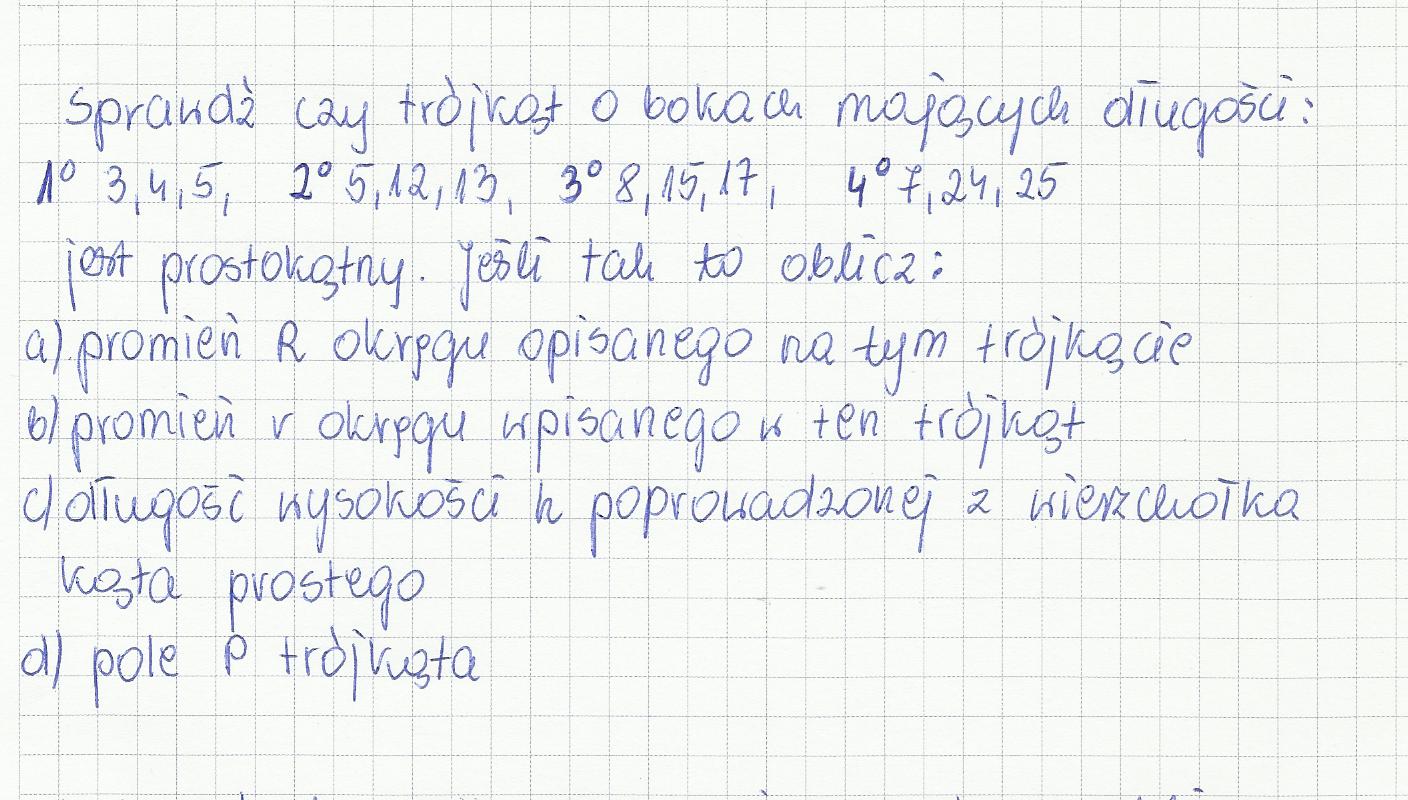 Sprawdź czy trójkąt o bokach mających długości:
1° 3,4,5, 2° 5,12,13, 3° 8,15,17, 4° 7,24,25
jest prostokątny. Jeśli tak to oblicz:
a) promień R okręgu opisanego na tym trójkącie
b) promień r okręgu wpisanego w ten trójkąt
c) długość wysokości h poprowadzonej z wierzchołka
kąta prostego
d) pole P trójkąta